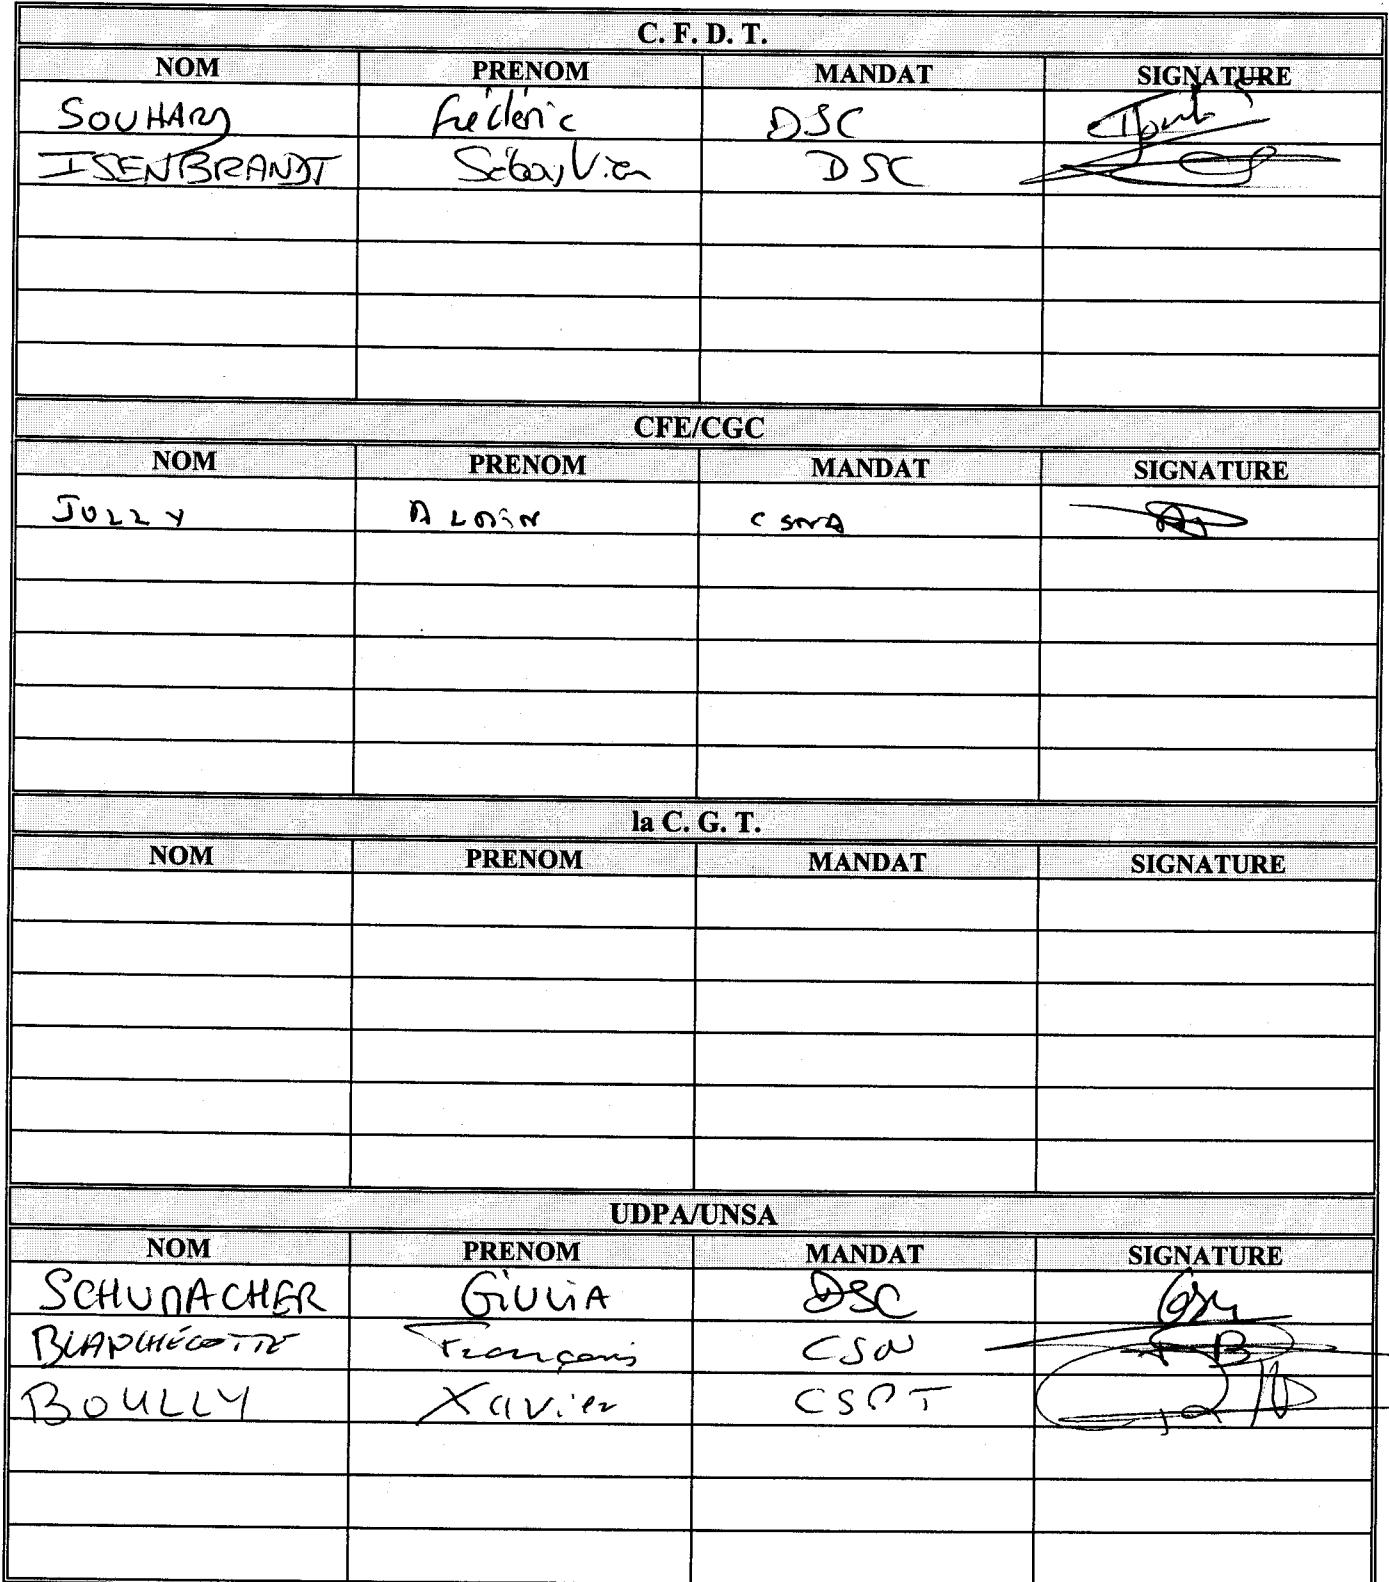 C. F. D. T.
NOM PRENOM MANDAT SIGNATURE
SOUHARD Frédéric DSC
ISENBRANDT Sébastien DSC
CFE/CGC
NOM PRENOM MANDAT SIGNATURE
JOLLY ALAIN
la C. G. T.
NOM PRENOM MANDAT SIGNATURE
UDPA/UNSA
NOM PRENOM MANDAT SIGNATURE
SCHUMACHER GiULiA DSC
BLANCHÉCOTTE François CSN
BOULLY Xavier